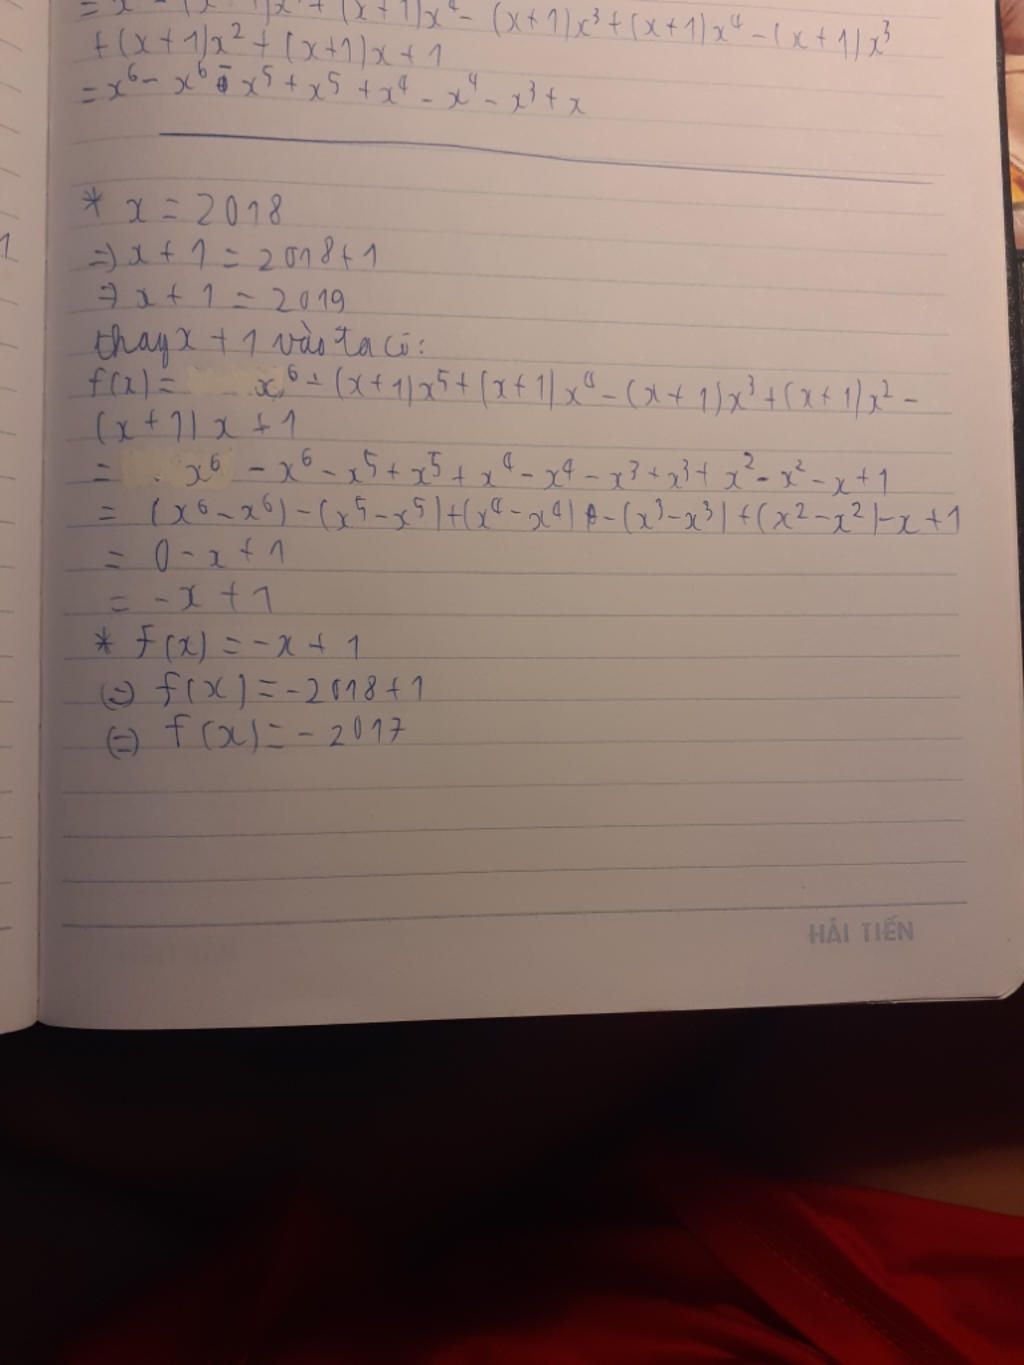 + (x+1)x⁴ - (x+1)x³ + (x+1)x⁴ - (x+1)x³
+ (x+1)x² + (x+1)x + 1
= x⁶ - x⁶ - x⁵ + x⁵ + x⁴ - x⁴ - x³ + x
1
* x = 2018
=> x + 1 = 2018 + 1
=> x + 1 = 2019
thay x + 1 vào ta có:
f(x) = x⁶ - (x+1)x⁵ + (x+1)x⁴ - (x+1)x³ + (x+1)x² -
(x+1)x + 1
= x⁶ - x⁶ - x⁵ + x⁵ + x⁴ - x⁴ - x³ + x³ + x² - x² - x + 1
= (x⁶ - x⁶) - (x⁵ - x⁵) + (x⁴ - x⁴) - (x³ - x³) + (x² - x²) - x + 1
= 0 - x + 1
= -x + 1
* f(x) = -x + 1
(=) f(x) = -2018 + 1
(=) f(x) = -2017
HẢI TIẾN